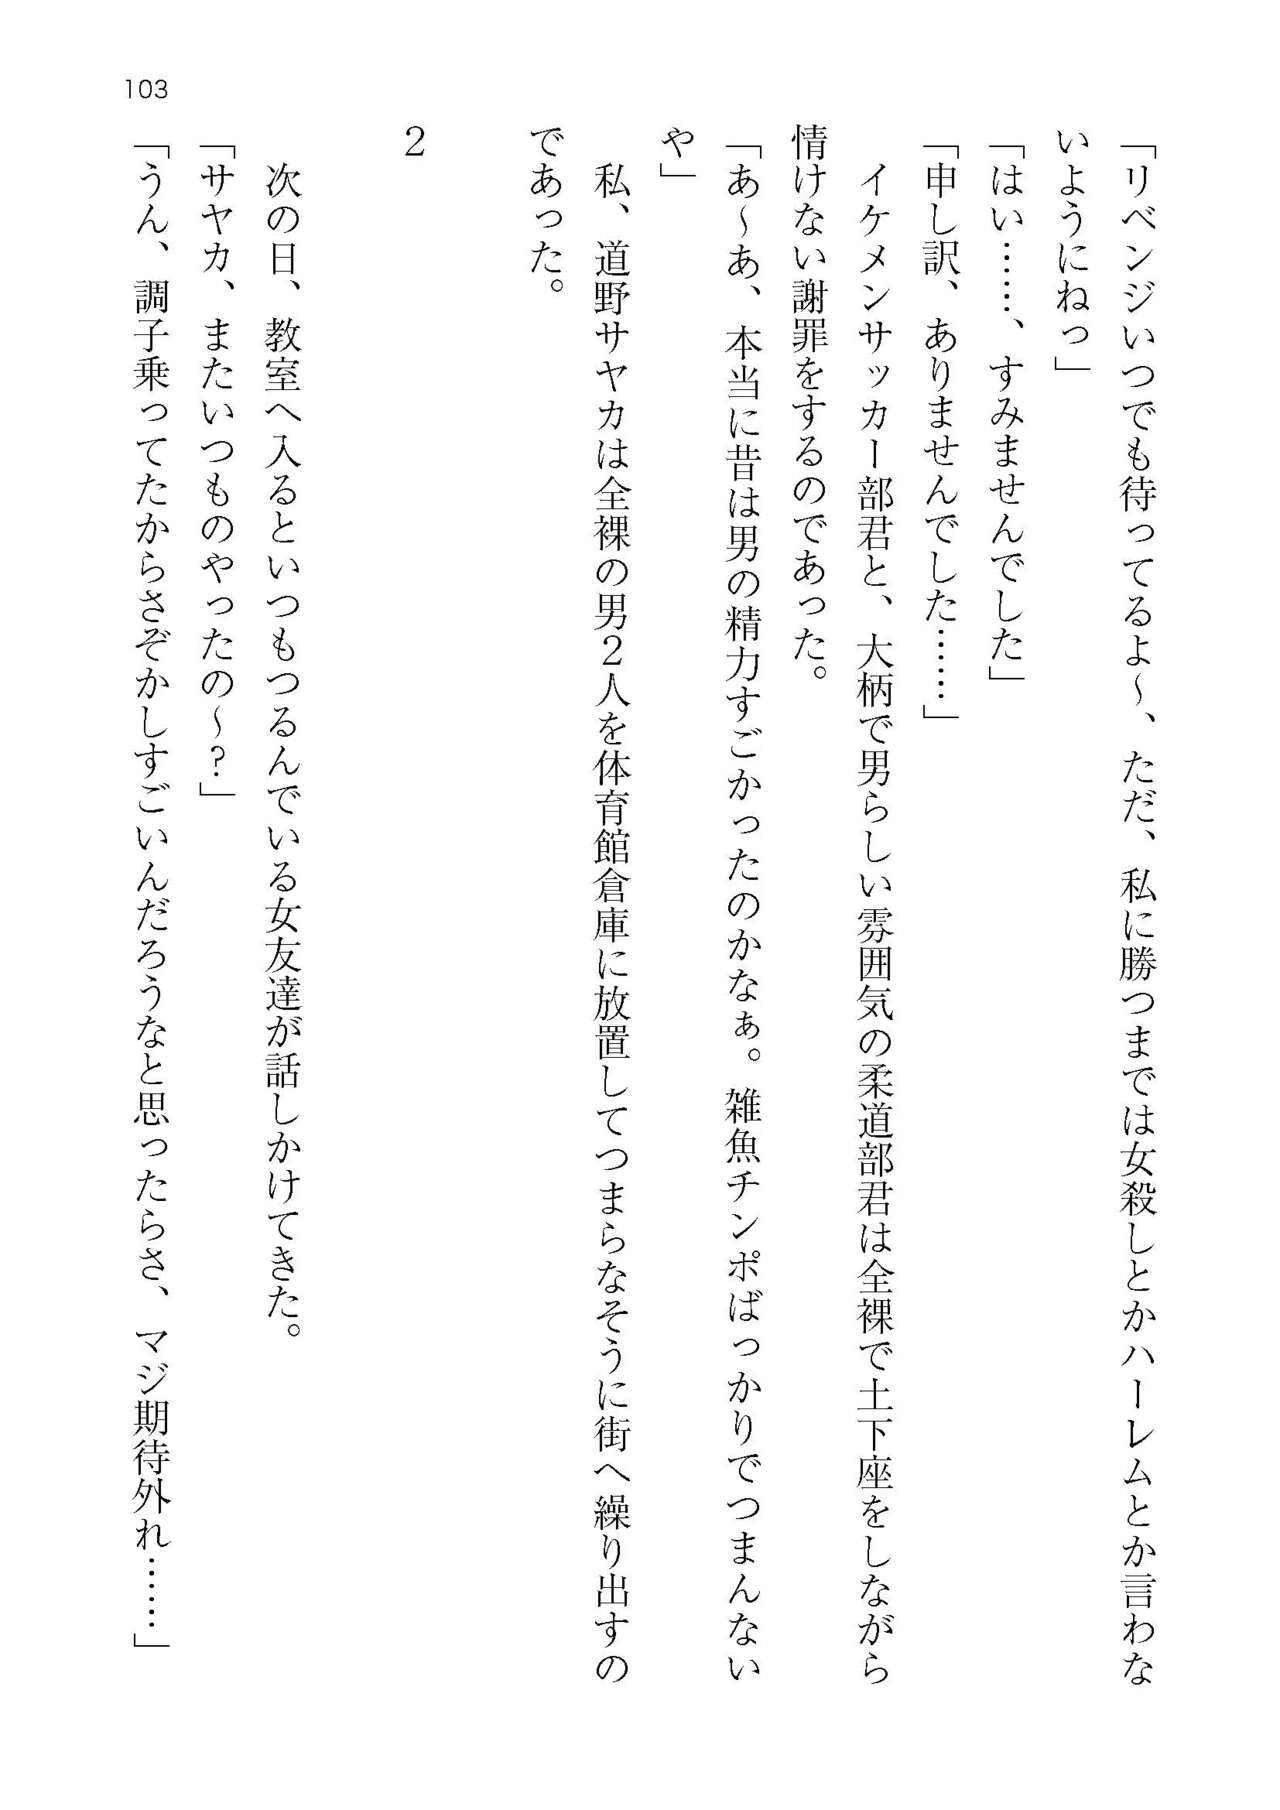 103
「リベンジいつでも待ってるよ～、ただ、私に勝つまでは女殺しとかハーレムとか言わな
いようにねっ」
「はい……、すみませんでした」
「申し訳、ありませんでした……」
　イケメンサッカー部君と、大柄で男らしい雰囲気の柔道部君は全裸で土下座をしながら
情けない謝罪をするのであった。
「あ～あ、本当に昔は男の精力すごかったのかなぁ。雑魚チンポばっかりでつまんない
や」
　私、道野サヤカは全裸の男２人を体育館倉庫に放置してつまらなそうに街へ繰り出すの
であった。
２
　次の日、教室へ入るといつもつるんでいる女友達が話しかけてきた。
「サヤカ、またいつものやったの～？」
「うん、調子乗ってたからさぞかしすごいんだろうなと思ったらさ、マジ期待外れ……」